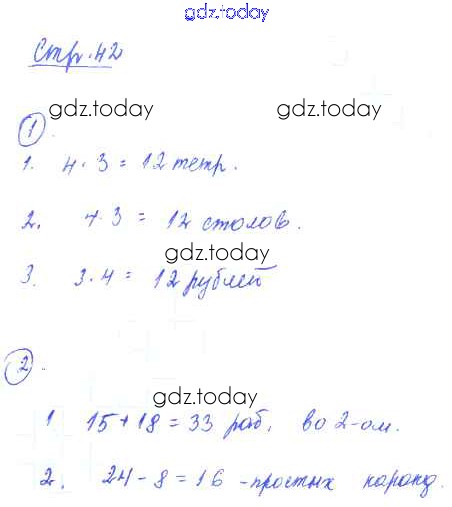 gdz.today
Стр. 42
gdz.today gdz.today
1.
1. 4 · 3 = 12 тетр.
2. 4 · 3 = 12 столов.
gdz.today
3. 3 · 4 = 12 рублей
2.
gdz.today
1 15 + 18 = 33 раб, во 2-ом.
gdz.today
2. 24 - 8 = 16 - простых каранд.